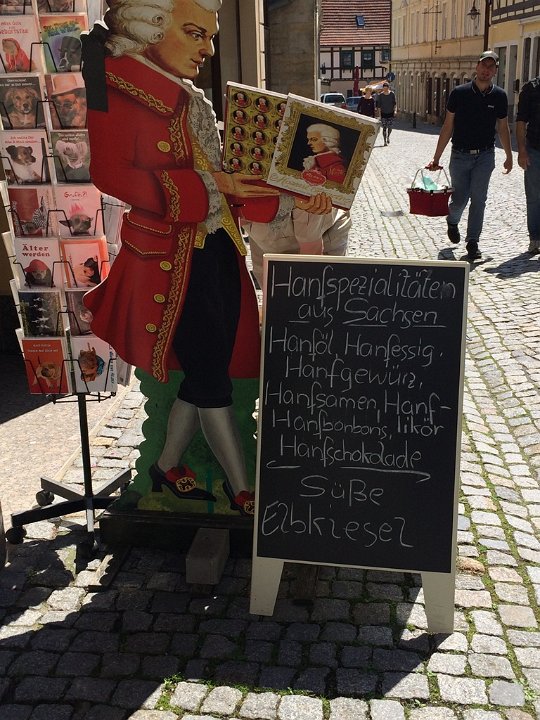 Hanfspezialitäten
aus Sachsen
Hanföl, Hanfessig,
Hanfgewürz,
Hanfsamen, Hanf-
Hanfbonbons, likör
Hanfschokolade
Süße
Elbkiesel
Älter
werden